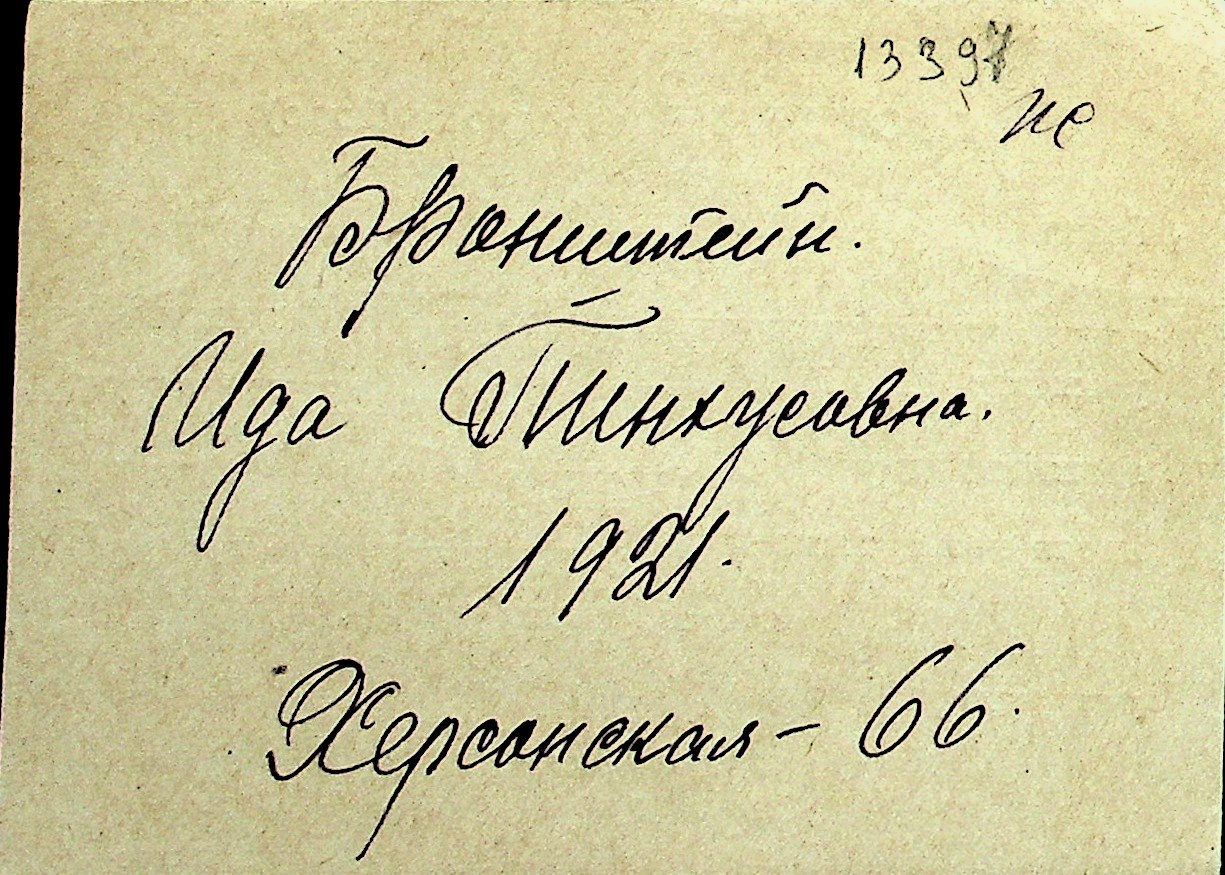 1339
Бронштейн.
Ида Пинхусовна.
1921.
Херсонская - 66.